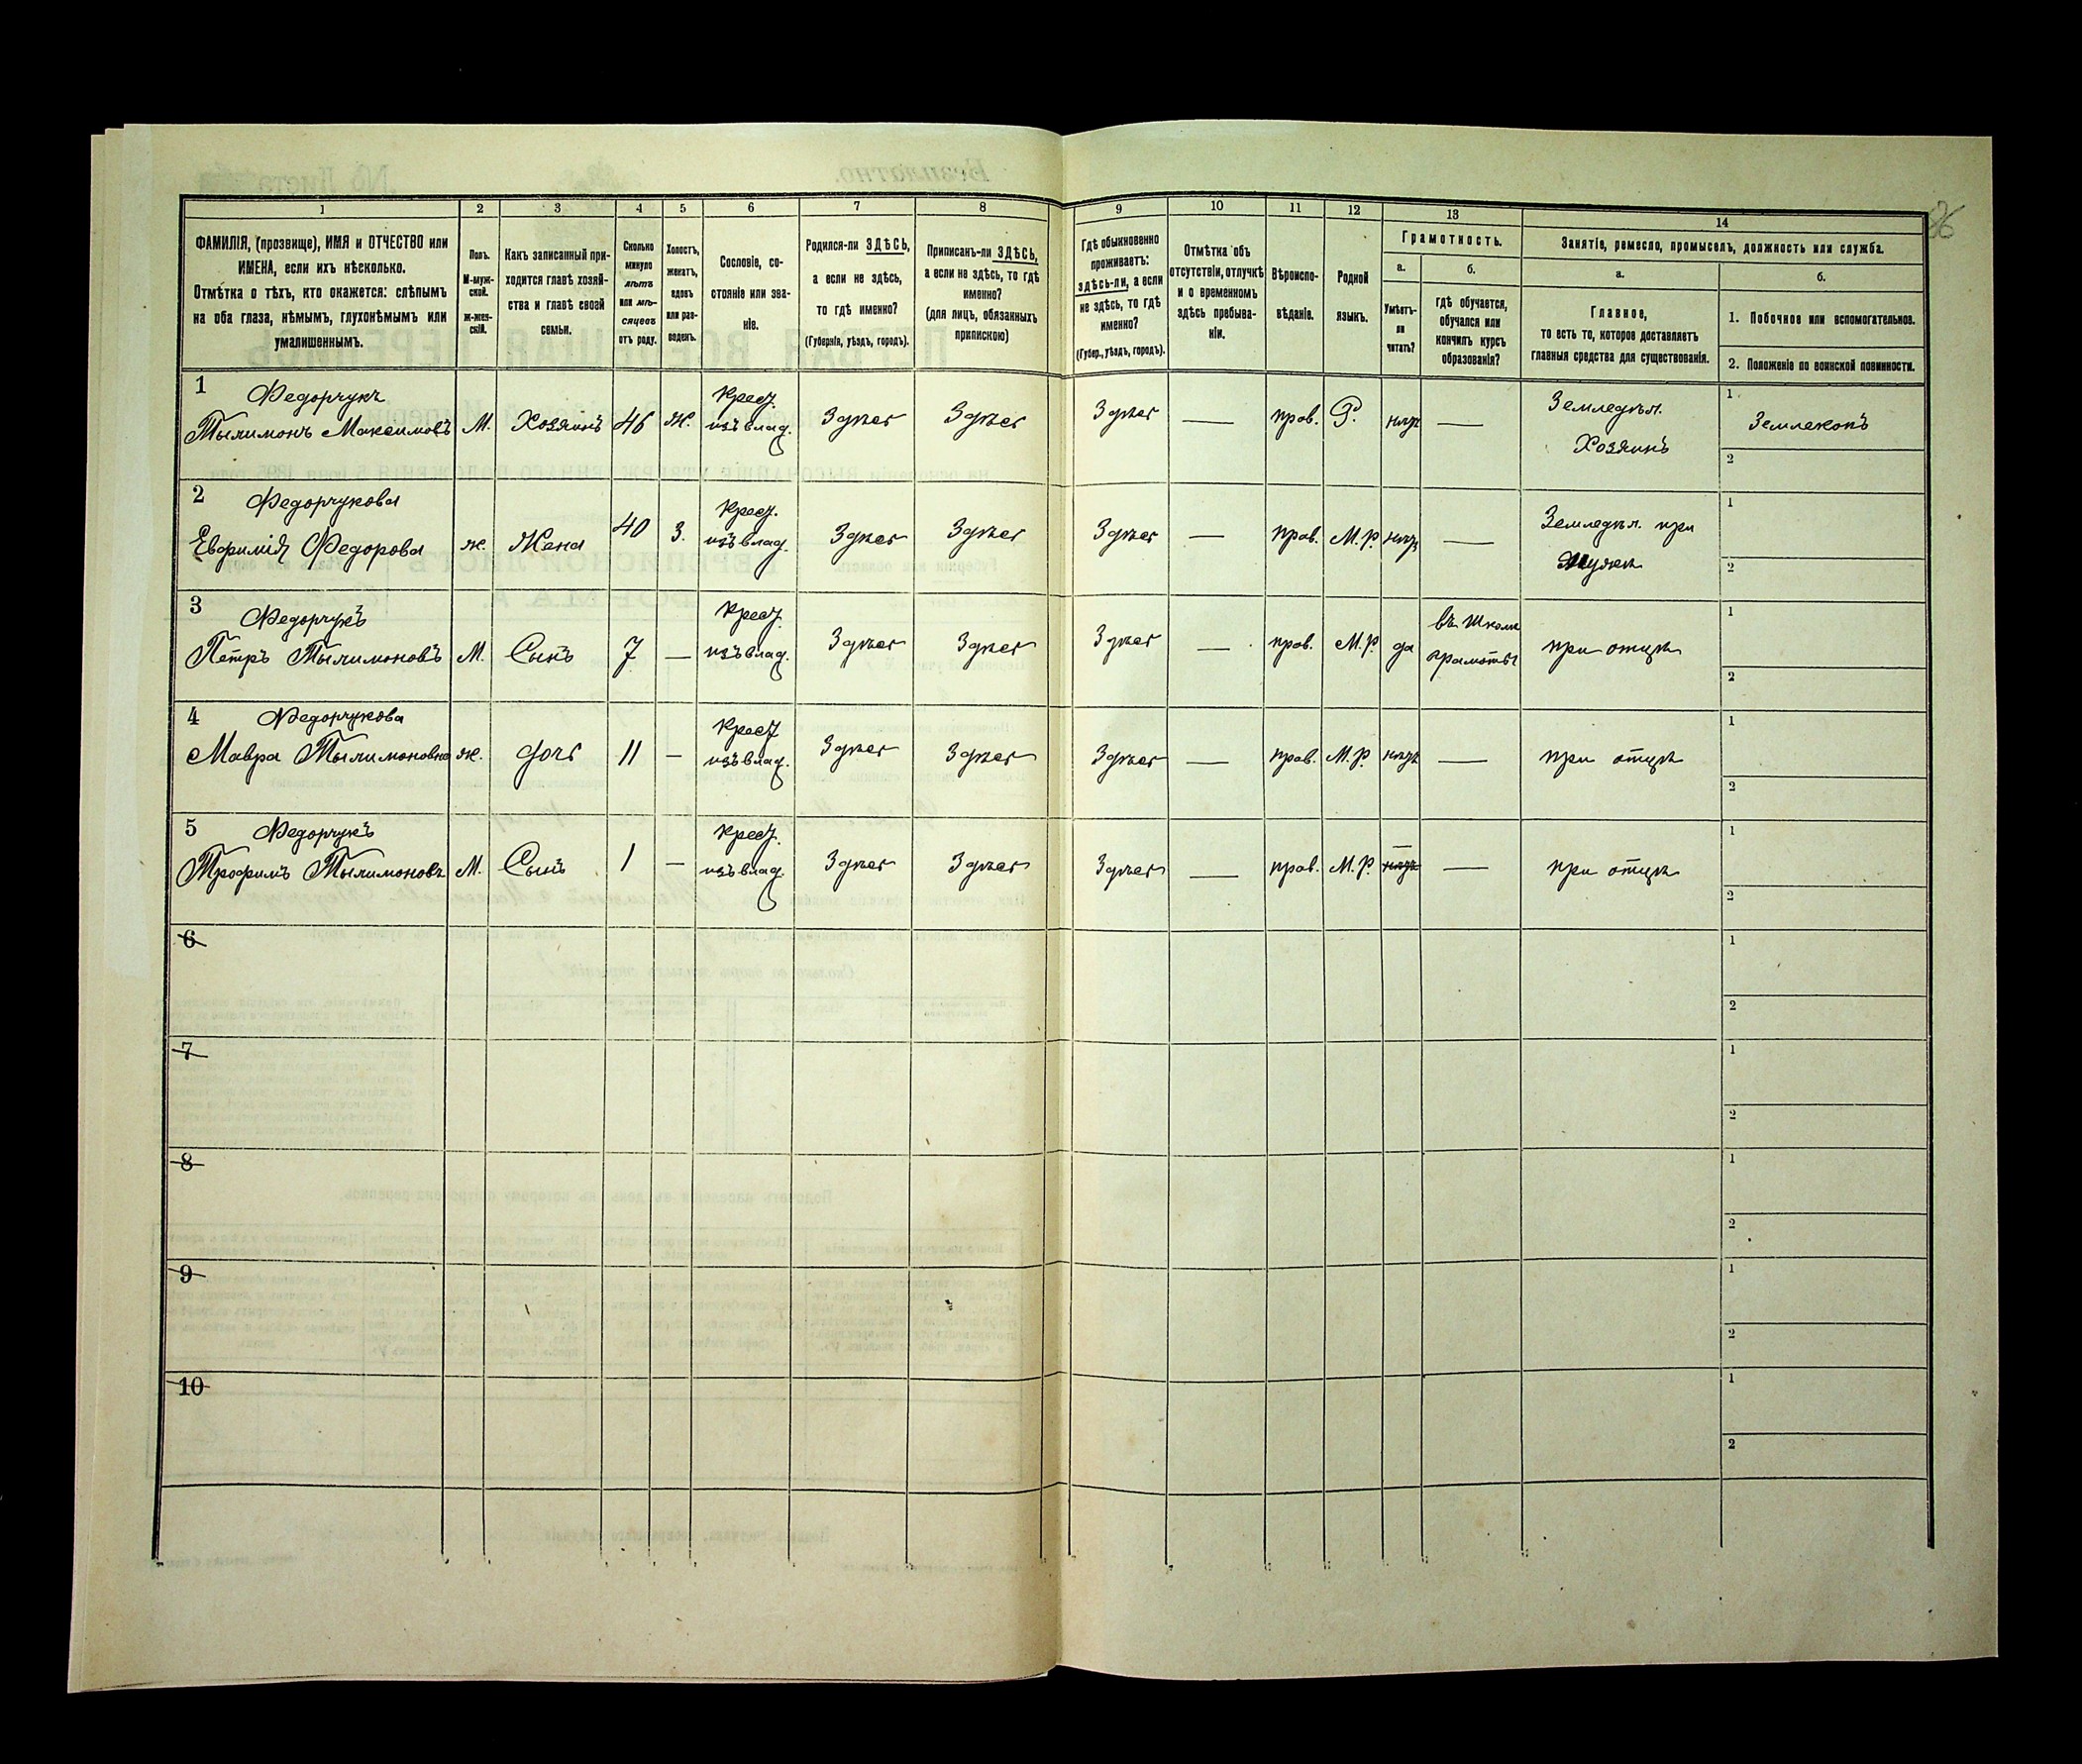 26
1
2
3
4
5
6
7
8
9
10
11
12
13
14
ФАМИЛІЯ, (прозвище), ИМЯ и ОТЧЕСТВО или
ИМЕНА, если ихъ нѣсколько.
Отмѣтка о тѣхъ, кто окажется: слѣпымъ
на оба глаза, нѣмымъ, глухонѣмымъ или
умалишеннымъ.
Полъ.
М-муж-
ской.
ж-жен-
скій.
Какъ записанный при-
ходится главѣ хозяй-
ства и главѣ своей
семьи.
Сколько
минуло
лѣтъ
или мѣ-
сяцевъ
отъ роду.
Холостъ,
женатъ,
вдовъ
или раз-
веденъ.
Сословіе, со-
стояніе или зва-
ніе.
Родился-ли ЗДѢСЬ,
а если не здѣсь,
то гдѣ именно?
(Губернія, уѣздъ, городъ).
Приписанъ-ли ЗДѢСЬ,
а если не здѣсь, то гдѣ
именно?
(для лицъ, обязанныхъ
припискою)
Гдѣ обыкновенно
проживаетъ:
здѣсь-ли, а если
не здѣсь, то гдѣ
именно?
(Губер., уѣздъ, городъ).
Отмѣтка объ
отсутствіи, отлучкѣ
и о временномъ
здѣсь пребыва-
ніи.
Вѣроиспо-
вѣданіе.
Родной
языкъ.
Грамотность.
а.
Умѣетъ-
ли
читать?
б.
гдѣ обучается,
обучался или
кончилъ курсъ
образованія?
Занятіе, ремесло, промыселъ, должность или служба.
а.
Главное,
то есть то, которое доставляетъ
главныя средства для существованія.
б.
1. Побочное или вспомогательное.
2. Положеніе по воинской повинности.
1 Федорчукъ
Тылимонъ Максимовъ М. Хозяинъ 46 ж. Крест. изъ влад. Здѣсь Здѣсь Здѣсь — прав. Р. нѣтъ — Земледѣл. Хозяинъ 1 Землекопъ
2
2 Федорчукова
Евфимія Федорова ж. Жена 40 З. Крест. изъ влад. Здѣсь Здѣсь Здѣсь — прав. М.Р. нѣтъ — Земледѣл. при мужѣ 1
2
3 Федорчукъ
Петръ Тылимоновъ М. Сынъ 7 — Крест. изъ влад. Здѣсь Здѣсь Здѣсь — прав. М.Р. да въ школѣ грамоты при отцѣ 1
2
4 Федорчукова
Мавра Тылимоновна ж. дочь 11 — Крест. изъ влад. Здѣсь Здѣсь Здѣсь — прав. М.Р. нѣтъ — при отцѣ 1
2
5 Федорчукъ
Трофимъ Тылимоновъ М. Сынъ 1 — Крест. изъ влад. Здѣсь Здѣсь Здѣсь — прав. М.Р. нѣтъ — при отцѣ 1
2
6 1
2
7 1
2
8 1
2
9 1
2
10 1
2